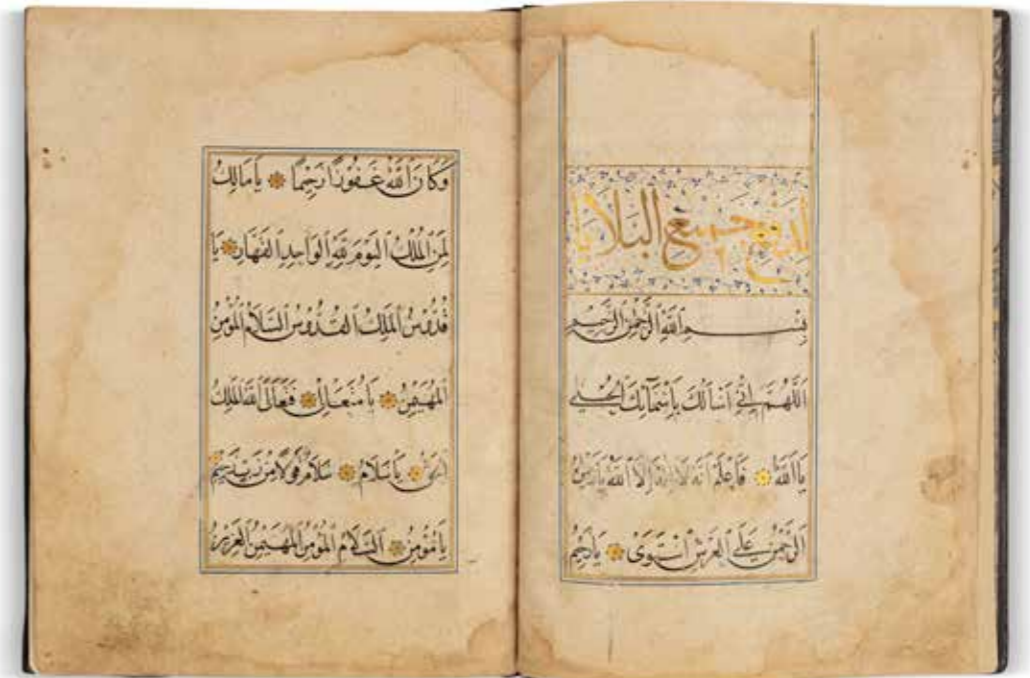 لدفع جميع البلايا
بِسْمِ اللَّهِ الرَّحْمٰنِ الرَّحِيمِ
اَللَّهُمَّ اِنِّي اَسْأَلُكَ بِاَسْمَآئِكَ الْحُسْنٰى
يَا اَللَّهُ فَاعْلَمْ اَنَّهُ لَا اِلٰهَ اِلَّا اللَّهُ يَا رَحْمٰنُ
اَلرَّحْمٰنُ عَلَى الْعَرْشِ اسْتَوٰى يَا رَحِيمُ
وَكَانَ اللَّهُ غَفُورًا رَحِيمًا يَا مَالِكُ
لِمَنِ الْمُلْكُ الْيَوْمَ لِلَّهِ الْوَاحِدِ الْقَهَّارِ يَا
قُدُّوسُ اَلْمَلِكُ الْقُدُّوسُ السَّلَامُ الْمُؤْمِنُ
الْمُهَيْمِنُ يَا مُتَعَالِ فَتَعَالَى اللَّهُ الْمَلِكُ
الْحَقُّ يَا سَلَامُ سَلَامٌ قَوْلًا مِنْ رَبٍّ رَحِيمٍ
يَا مُؤْمِنُ اَلسَّلَامُ الْمُؤْمِنُ الْمُهَيْمِنُ الْعَزِيزُ